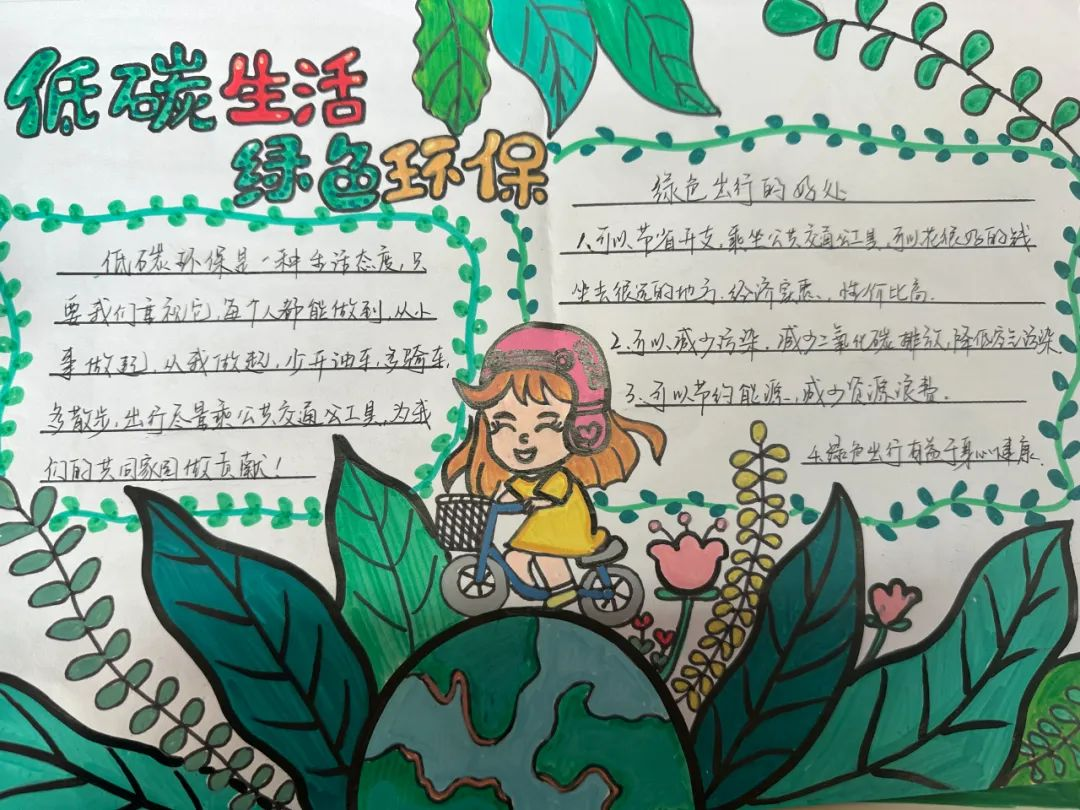 低碳生活
绿色环保
低碳环保是一种生活态度,只
要我们重视它,每个人都能做到,从小
事做起,从我做起,少开油车,多骑车,
多散步,出行尽量乘公共交通公工具,为我
们的共同家园做贡献!
绿色出行的好处
1.可以节省开支,乘坐公共交通公工具,可以花很少的钱
坐去很远的地方.经济实惠.,性价比高.
2.可以减少污染.减少二氧化碳排放,降低空气污染
3.可以节约能源.,减少资源浪费.
4.绿色出行有益于身心健康.